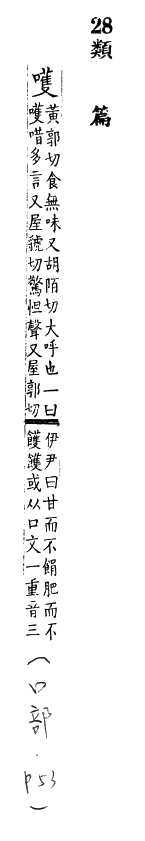 28
類篇
嚄
黃郭切食無味又胡陌切大呼也一曰
嚄唶多言又屋虢切驚怛聲又屋郭切
伊尹曰甘而不䬼肥而不
䭉或从口文一重音三
(口部.p53)